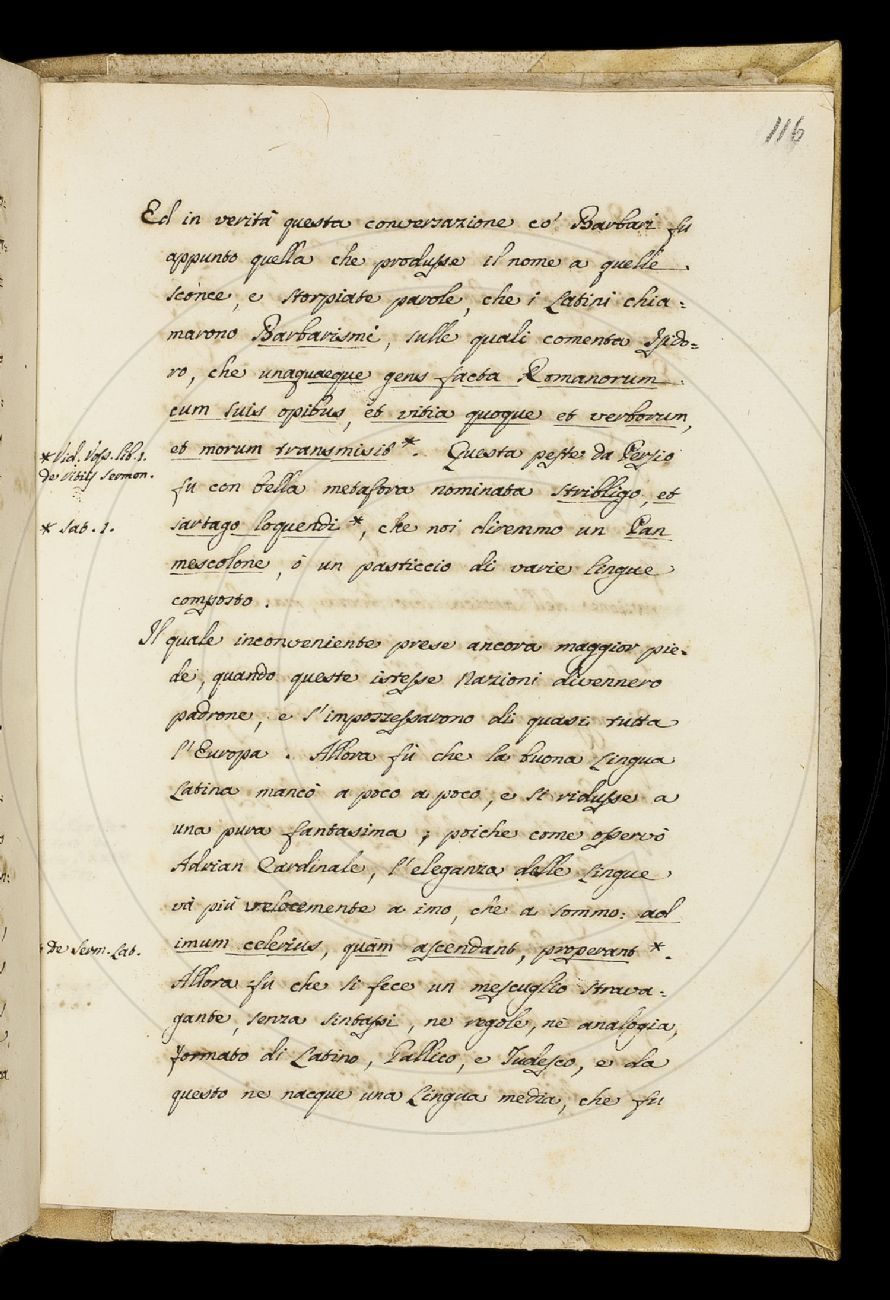 116
Ed in verità questa conversazione co' Barbari fu
appunto quella che produsse il nome a quelle
sconce, e storpiate parole, che i Latini chia=
marono Barbarismi, sulle quali comenta Isido=
ro, che unaquaeque gens facta Romanorum
cum suis opibus, et vitia quoque et verborum,
et morum transmisit *. Questa peste da Persio
* Vid. Voss. lib. 1.
de vitijs sermon.
fu con bella metafora nominata stribligo, et
sartago loquendi *, che noi diremmo un Pan
* Sat. 1.
mescolone, ò un pasticcio di varie lingue
composto.
Il quale inconveniente prese ancora maggior pie-
de, quando queste istesse Nazioni divennero
padrone, e s'impossessarono di quasi tutta
l'Europa. Allora fù che la buona Lingua
Latina mancò a poco a poco, e si ridusse a
una pura fantasima; poiche come osservò
Adrian Cardinale, l'eleganza delle Lingue
và più velocemente a imo, che a sommo: ad
imum celerius, quàm ascendant, properant *.
de Serm. Lat.
Allora fu che si fece un mescuglio strava=
gante, senza sintassi, ne regole, nè analogia,
formato di Latino, Gallico, e Tudesco, e da
questo ne nacque una Lingua media, che fu